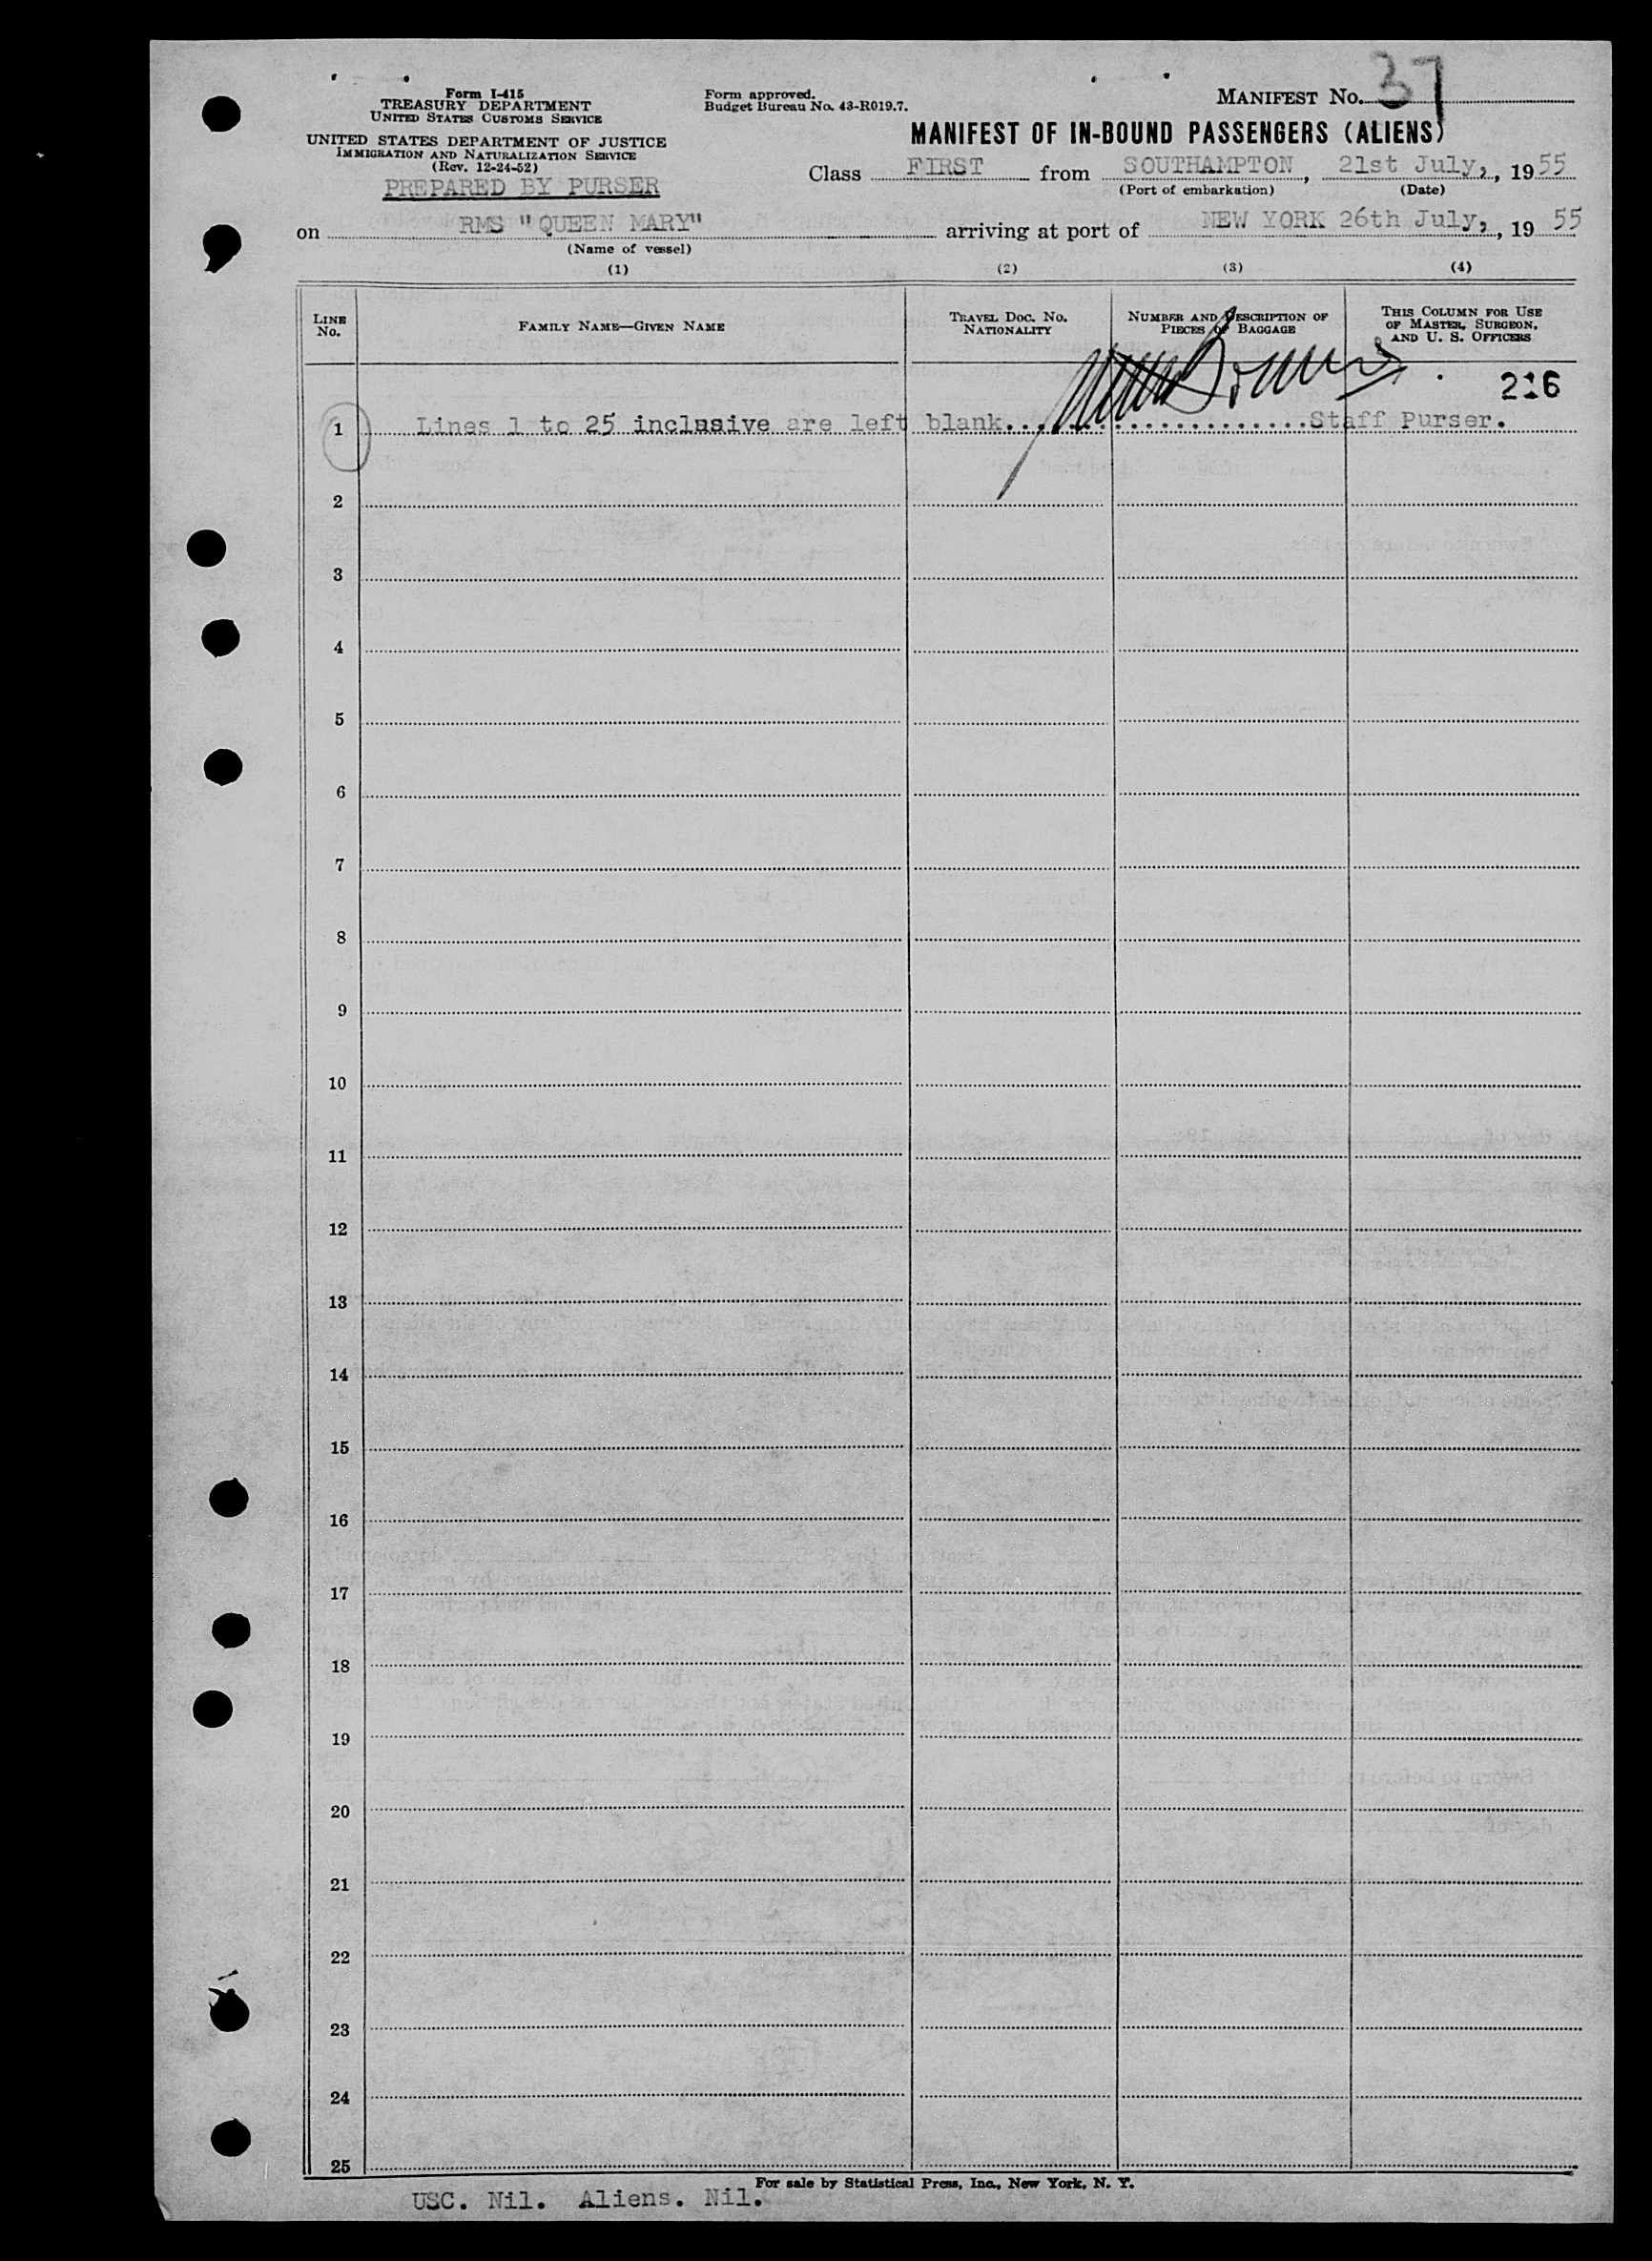 Form I-415
TREASURY DEPARTMENT
UNITED STATES CUSTOMS SERVICE
UNITED STATES DEPARTMENT OF JUSTICE
IMMIGRATION AND NATURALIZATION SERVICE
(Rev. 12-24-52)
PREPARED BY PURSER
Form approved.
Budget Bureau No. 43-R019.7.
MANIFEST NO. 37
MANIFEST OF IN-BOUND PASSENGERS (ALIENS)
Class FIRST from SOUTHAMPTON, 21st July,, 1955
(Port of embarkation) (Date)
on RMS "QUEEN MARY" arriving at port of NEW YORK 26th July,, 1955
(Name of vessel)
(1) (2) (3) (4)
LINE NO. FAMILY NAME—GIVEN NAME TRAVEL DOC. NO. NATIONALITY NUMBER AND DESCRIPTION OF PIECES OF BAGGAGE THIS COLUMN FOR USE OF MASTER, SURGEON, AND U. S. OFFICERS
216
1 Lines 1 to 25 inclusive are left blank........................Staff Purser.
2
3
4
5
6
7
8
9
10
11
12
13
14
15
16
17
18
19
20
21
22
23
24
25
For sale by Statistical Press, Inc., New York, N. Y.
USC. Nil. Aliens. Nil.